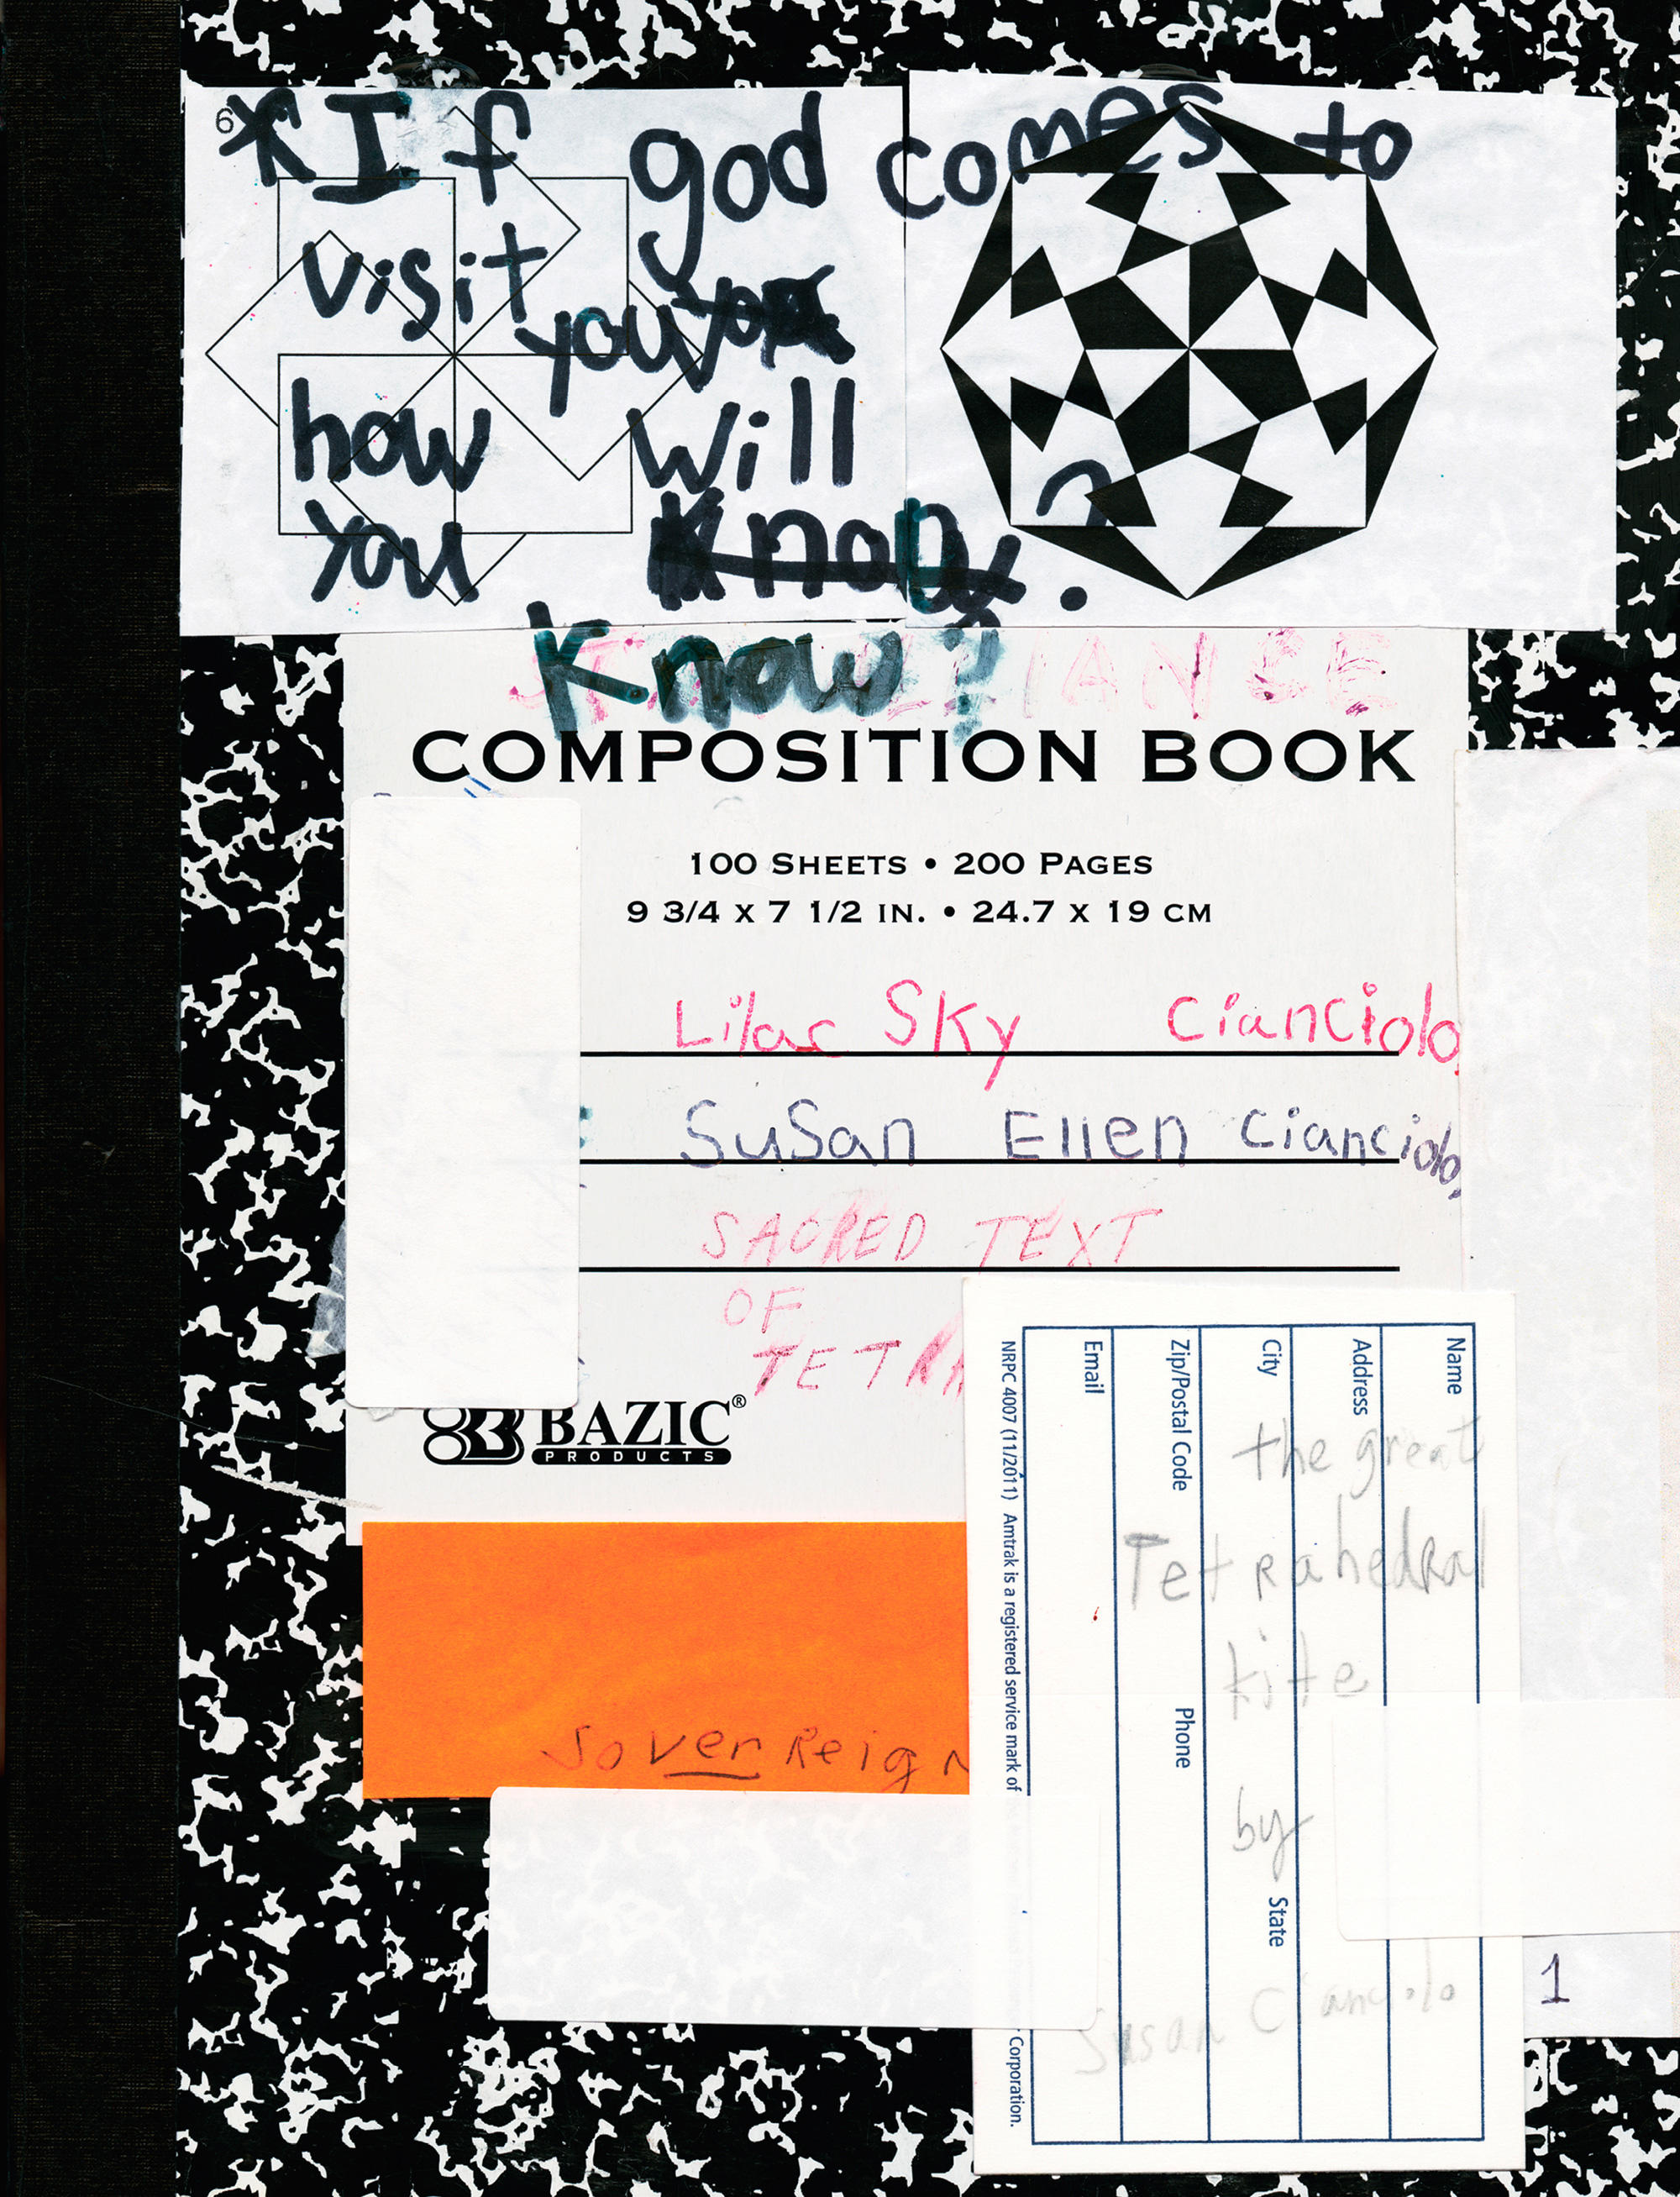 6
*If god comes to
visit you you
how will
you know ?
Know?
COMPOSITION BOOK
100 SHEETS • 200 PAGES
9 3/4 X 7 1/2 IN. • 24.7 X 19 CM
Lilac Sky Cianciolo
SuSan Ellen Cianciolo
SACRED TEXT
OF
TETRA
BAZIC®
PRODUCTS
Name
Address
City State
Zip/Postal Code Phone
Email
NRPC 4007 (11/2011) Amtrak is a registered service mark of
Corporation.
the great
Tetrahedral
kite
by
Susan Cianciolo
SoverReign
1